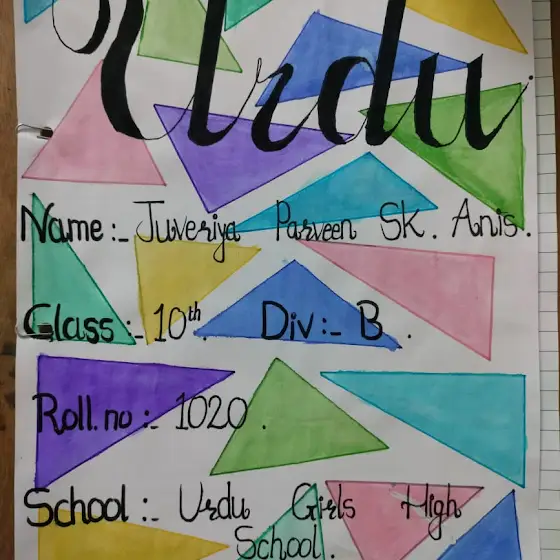 Urdu
Name :- Juveriya Parveen SK. Anis.
Class :- 10th. Div :- B.
Roll.no :- 1020.
School :- Urdu Girls High
School.